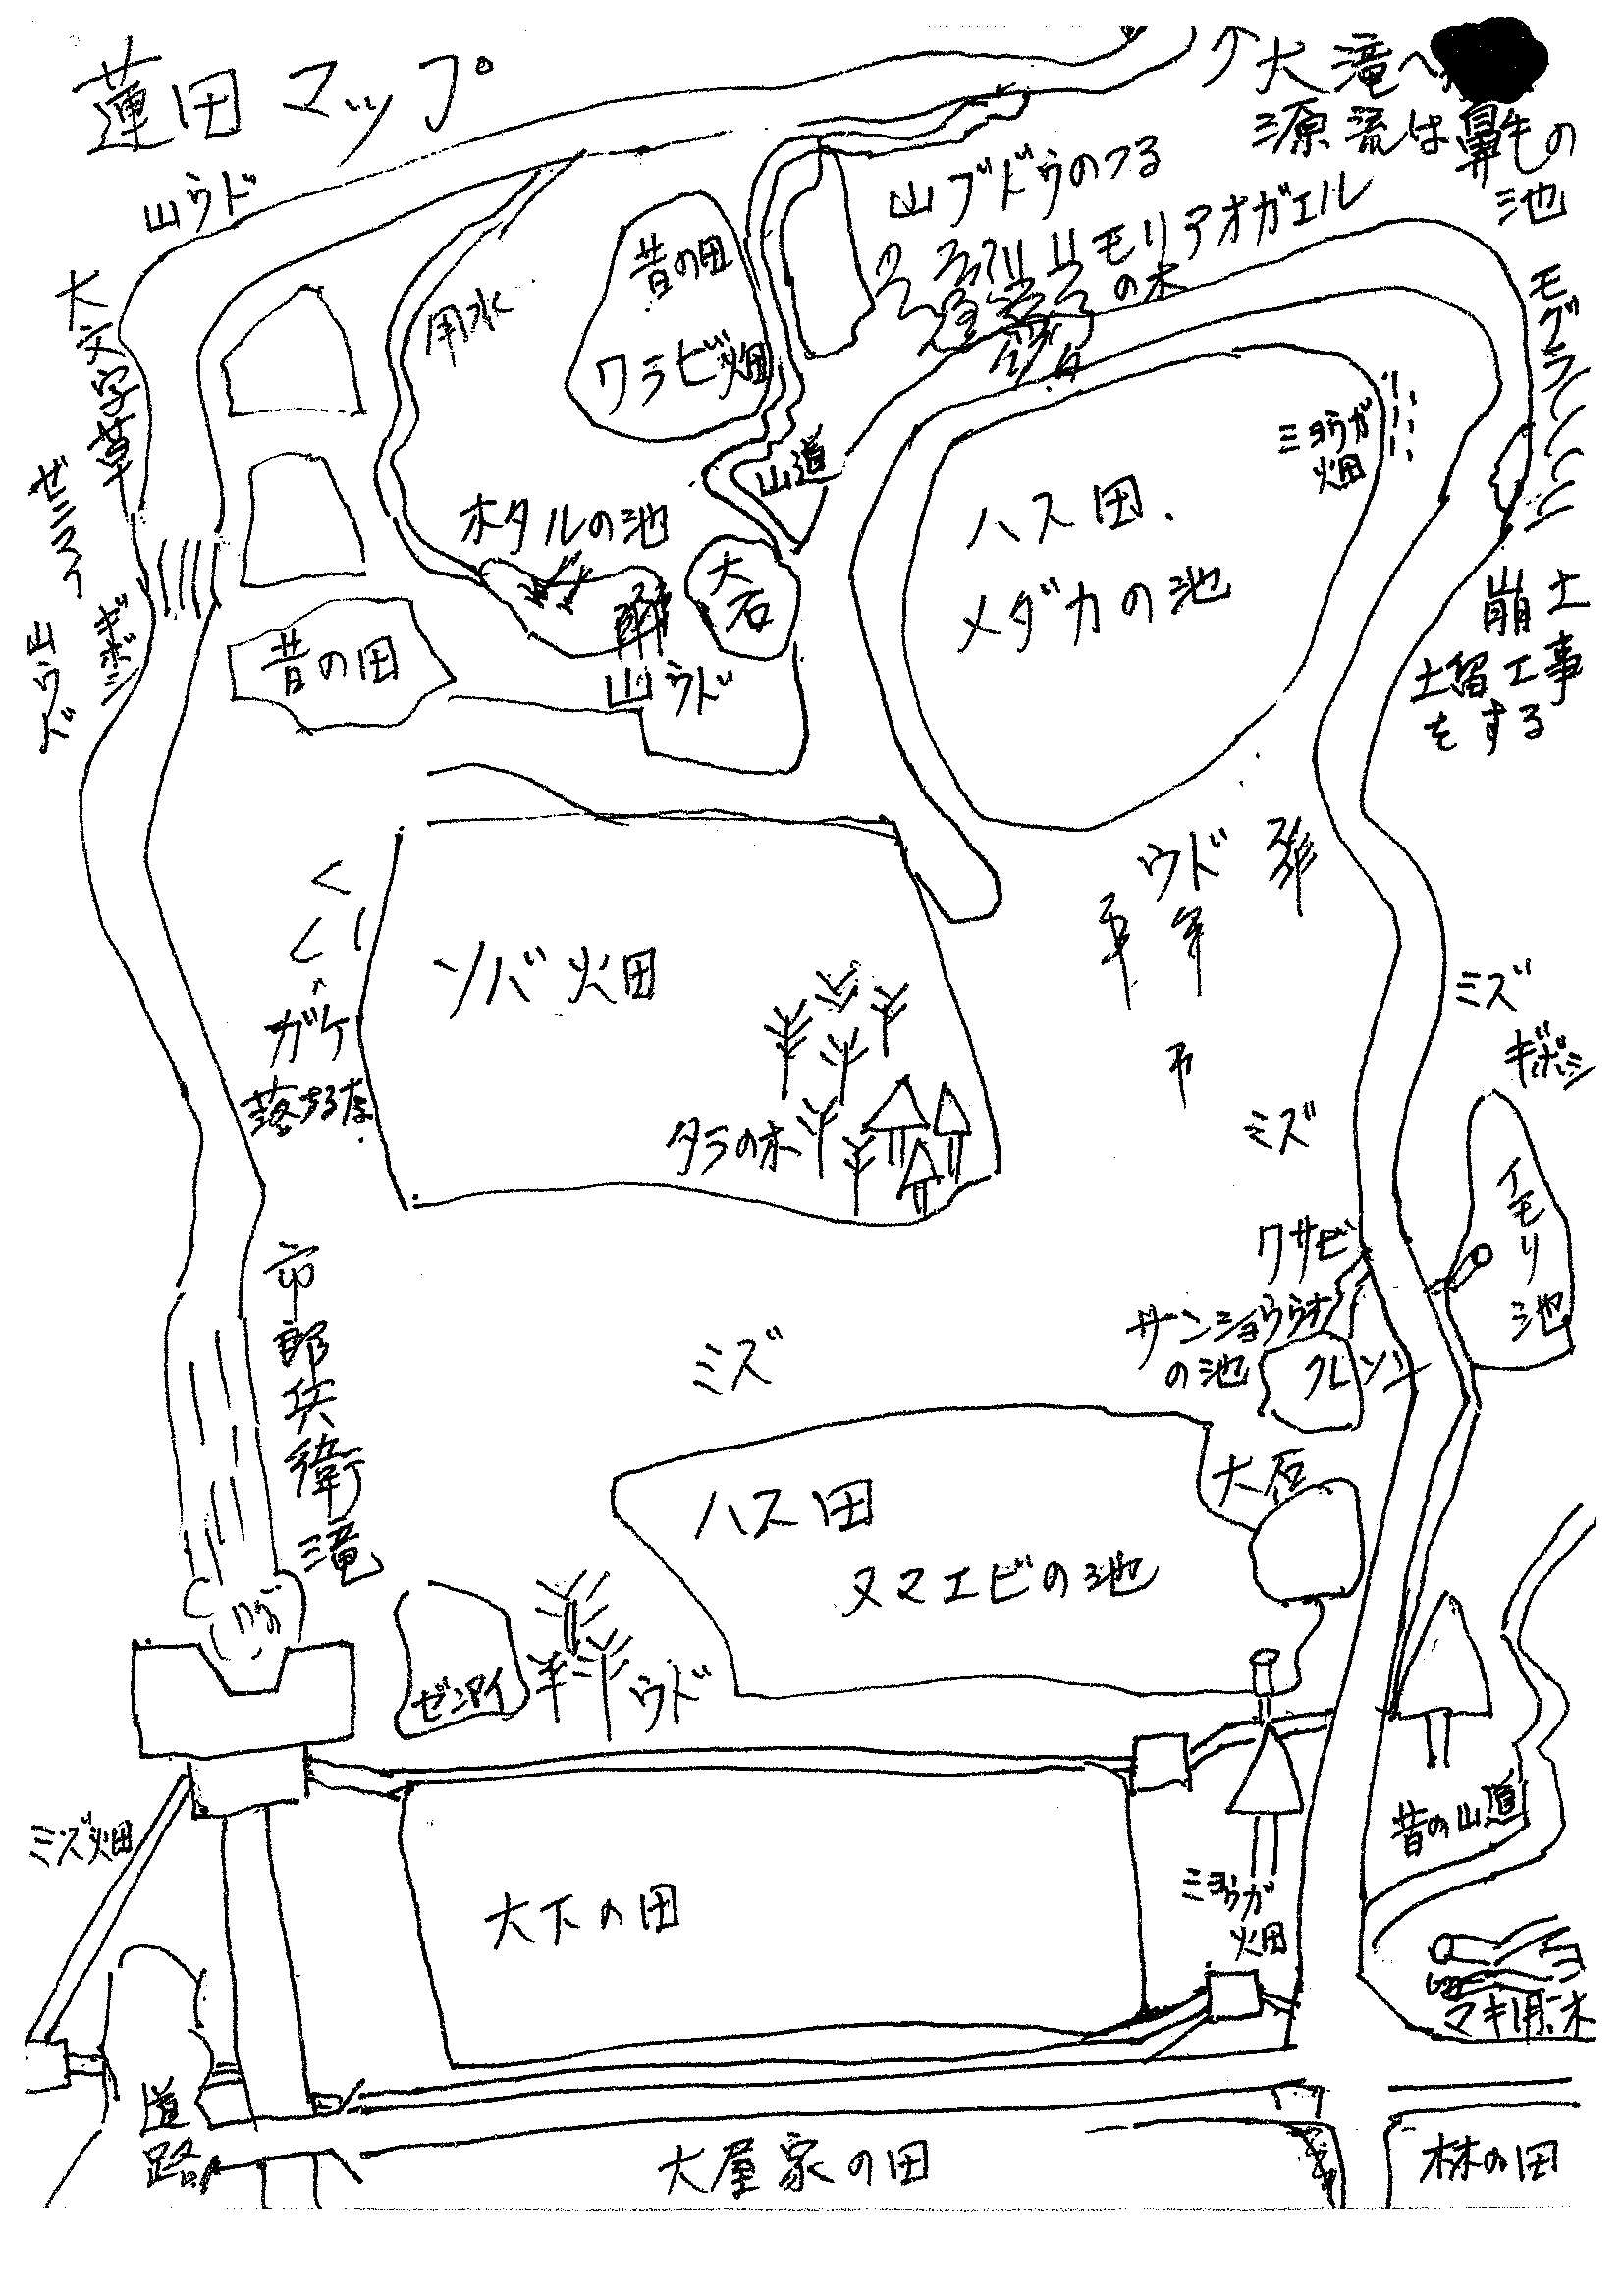 蓮田マップ
大滝へ
源流は鼻毛の
池
山ウド
山ブドウのつる
モリアオガエル
の木
大文字草
用水
昔の田
ワラビ畑
ゼンマイ
ギボシ
山ウド
山道
ミョウガ
畑
ハス田
メダカの池
ホタルの池
大石
山ウド
昔の田
崩土
土留工事
をする
ウド
ソバ畑
ガケ
落ちるな
タラの木
ミズ
ギボシ
ミズ
イモリ池
ワサビ
サンショウウオ
の池
クレソン
ミズ
市郎兵衛滝
大石
ハス田
ヌマエビの池
ゼンマイ
ウド
ミズ畑
昔の山道
大下の田
ミョウガ
畑
マキ用木
道路
大屋家の田
林の田